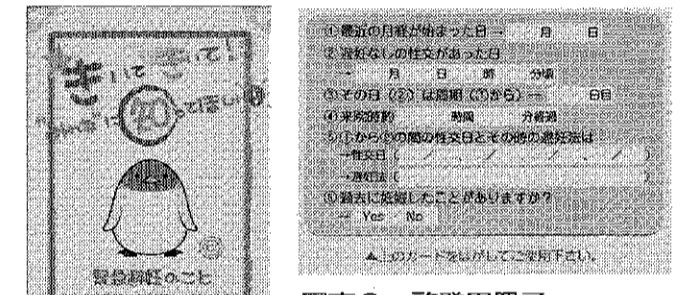 きいて!
きいて!
知ってほしい
緊急避妊のこと
①最近の月経が始まった日→ 月 日
②避妊なしの性交があった日
→ 月 日 時 分頃
③その日(②)は周期(①から)→ 日目
④来院時刻 時間 分経過
⑤①から②の間の性交日とその時の避妊法は
→性交日( / , / , / , / )
→避妊法( )
⑥過去に妊娠したことがありますか?
→ Yes No
▲上のカードをはがしてご使用下さい。